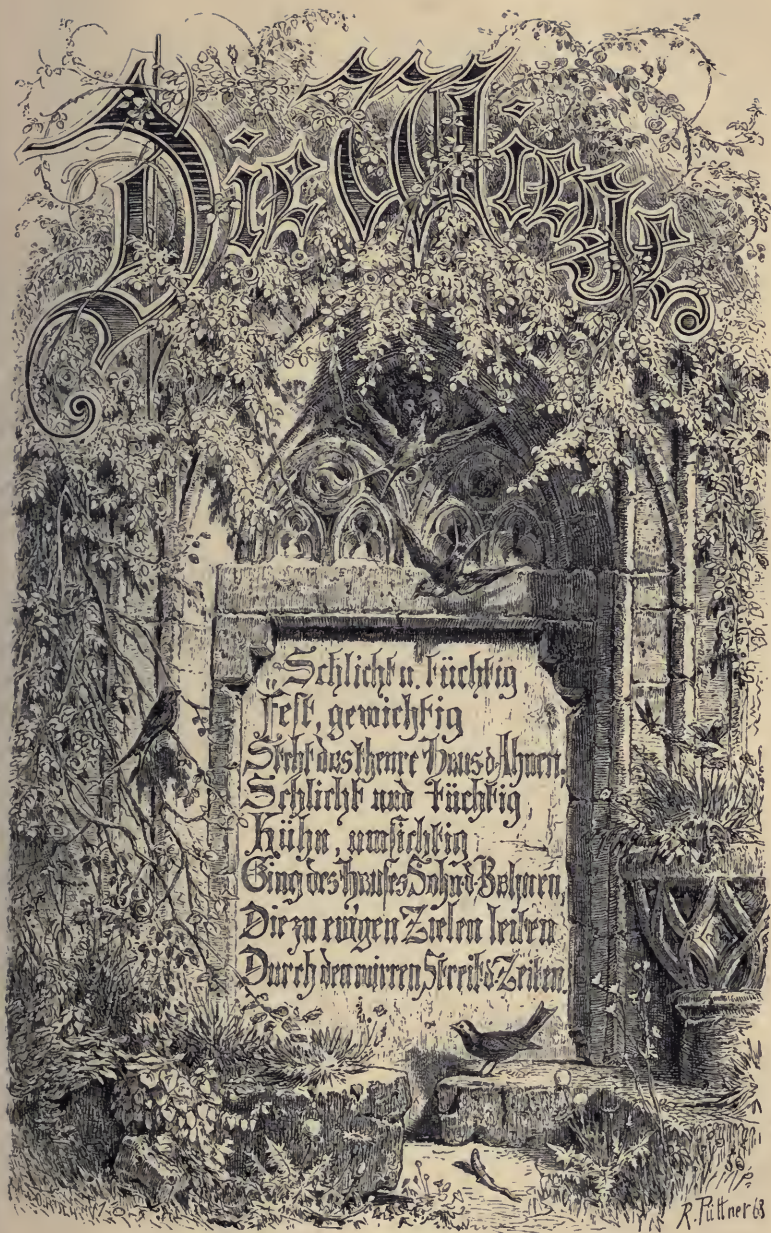 Die Wiege.
Schlicht u. tüchtig,
Fest, gewichtig
Steht das theure Haus d. Ahnen,
Schlicht und tüchtig,
Kühn, umsichtig
Ging des Hauses Sohn d. Bahnen,
Die zu ewigen Zielen leiten
Durch den wirren Streit d. Zeiten.
R. Püttner 68